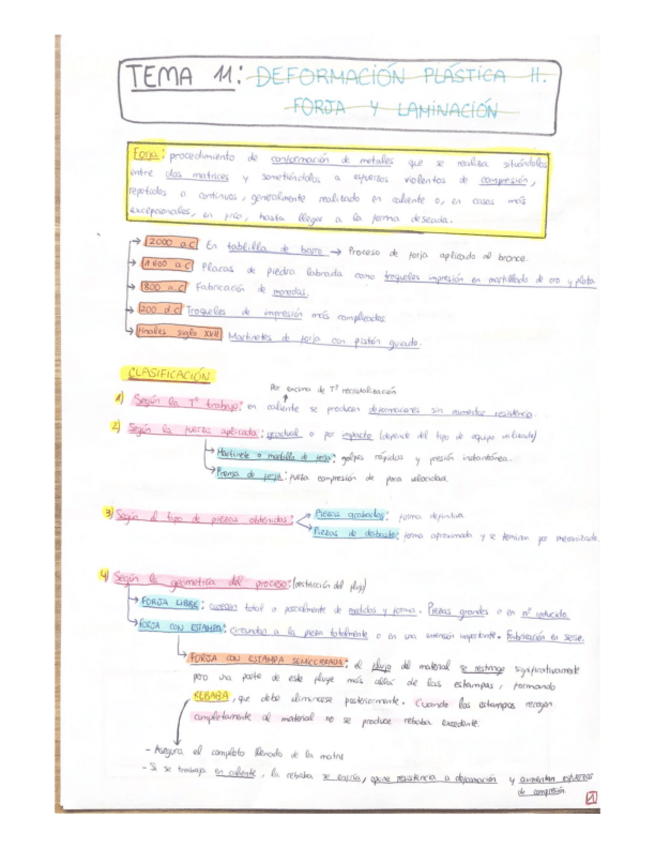 TEMA 11: DEFORMACIÓN PLÁSTICA II.
FORJA Y LAMINACIÓN
Forja: procedimiento de conformación de metales que se realiza situándolos
entre dos matrices y sometiéndolos a esfuerzos violentos de compresión,
repetidos o continuos, generalmente realizado en caliente o, en casos más
excepcionales, en frío, hasta llegar a la forma deseada.
2000 a.C En tablilla de barro → Proceso de forja aplicado al bronce.
1600 a.C Placas de piedra labrada como troqueles impresión en martillado de oro y plata
800 a.C Fabricación de monedas.
200 d.C Troqueles de impresión más complicados
Finales siglo XVII Martinetes de forja con pistón guiado.
CLASIFICACIÓN
Por encima de Tª recristalización
1) Según la Tª trabajo: en caliente se producen deformaciones sin aumentar resistencia.
2) Según la fuerza aplicada: gradual o por impacto (depende del tipo de equipo utilizado)
Martinete o martillo de forja: golpes rápidos y presión instantánea.
Prensa de forja: justa compresión de poca velocidad.
3) Según el tipo de piezas obtenidas:
Piezas acabadas: forma definitiva
Piezas de desbaste: forma aproximada y se terminan por mecanizado.
4) Según la geometría del proceso: (restricción del flujo)
FORJA LIBRE: total o parcialmente de medidas y forma. Piezas grandes o en nº reducido.
FORJA CON ESTAMPA: circundan a la pieza totalmente o en una extensión importante. Fabricación en serie.
FORJA CON ESTAMPA SEMICERRADA: el flujo del material se restringe significativamente
pero una parte de este fluye más allá de las estampas, formando
REBABA, que debe eliminarse posteriormente. Cuando las estampas recogen
completamente al material no se produce rebaba excedente.
- Asegura el completo llenado de la matriz
- Si se trabaja en caliente, la rebaba se enfría, opone resistencia a deformación y aumentan esfuerzos
de compresión.
1